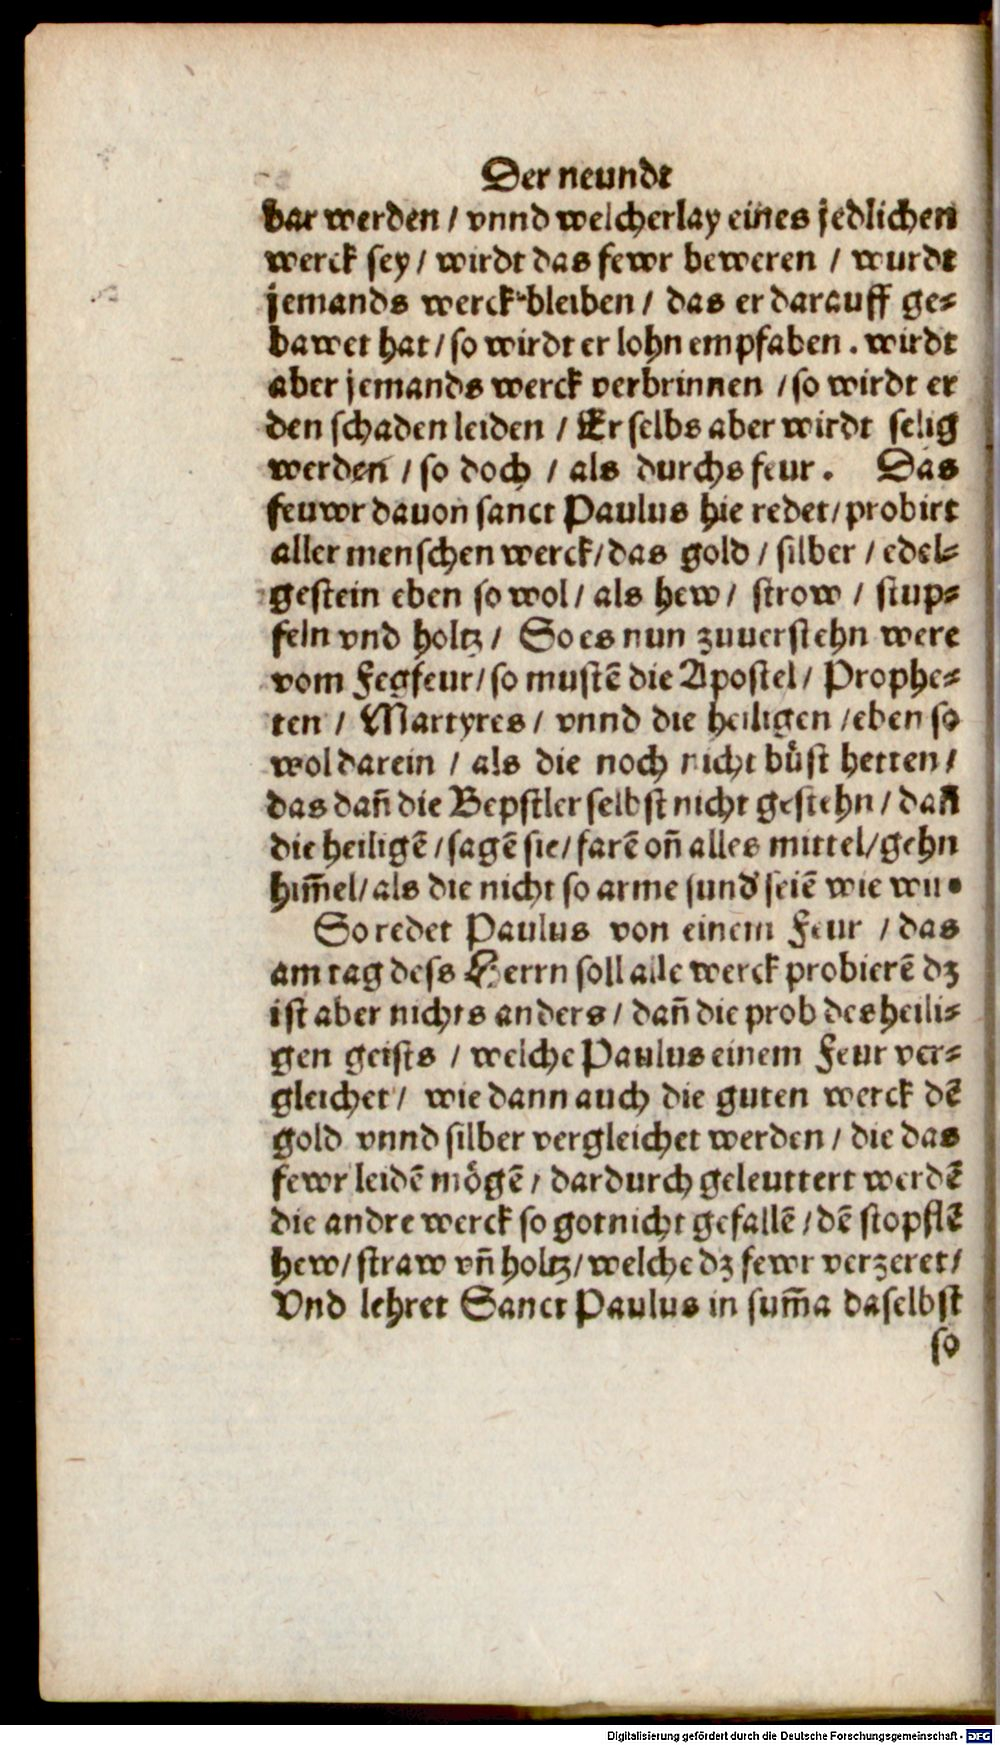 Der neundt
bar werden / vnnd welcherlay eines jedlichen
werck sey / wirdt das fewr beweren / wurdt
jemands werck bleiben / das er darauff ge⸗
bawet hat / so wirdt er lohn empfaben . wirdt
aber jemands werck verbrinnen / so wirdt er
den schaden leiden / Er selbs aber wirdt selig
werden / so doch / als durchs feur . Das
feuwr dauon sanct Paulus hie redet / probirt
aller menschen werck / das gold / silber / edel⸗
gestein eben so wol / als hew / strow / stup⸗
feln vnd holtz / So es nun zuuerstehn were
vom Fegfeur / so mustē die Apostel / Prophe⸗
ten / Martyres / vnnd die heiligen / eben so
wol darein / als die noch nicht bůst hetten /
das dañ die Bepstler selbst nicht gestehn / dañ
die heiligē / sagē sie / farē oñ alles mittel / gehn
him̄el / als die nicht so arme sund seiē wie wir .
So redet Paulus von einem Feur / das
am tag dess Herrn soll alle werck probierē dz
ist aber nichts anders / dañ die prob des heili⸗
gen geists / welche Paulus einem Feur ver⸗
gleichet / wie dann auch die guten werck dē
gold vnnd silber vergleichet werden / die das
fewr leidē mögē / dardurch geleuttert werdē
die andre werck so got nicht gefallē / dē stopflē
hew / straw vñ holtz / welche dz fewr verzeret /
Vnd lehret Sanct Paulus in sum̄a daselbst
so
Digitalisierung gefördert durch die Deutsche Forschungsgemeinschaft - DFG